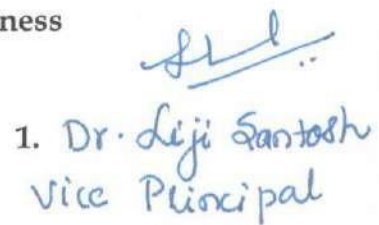 ness
1. Dr. Liji Santosh
Vice Principal